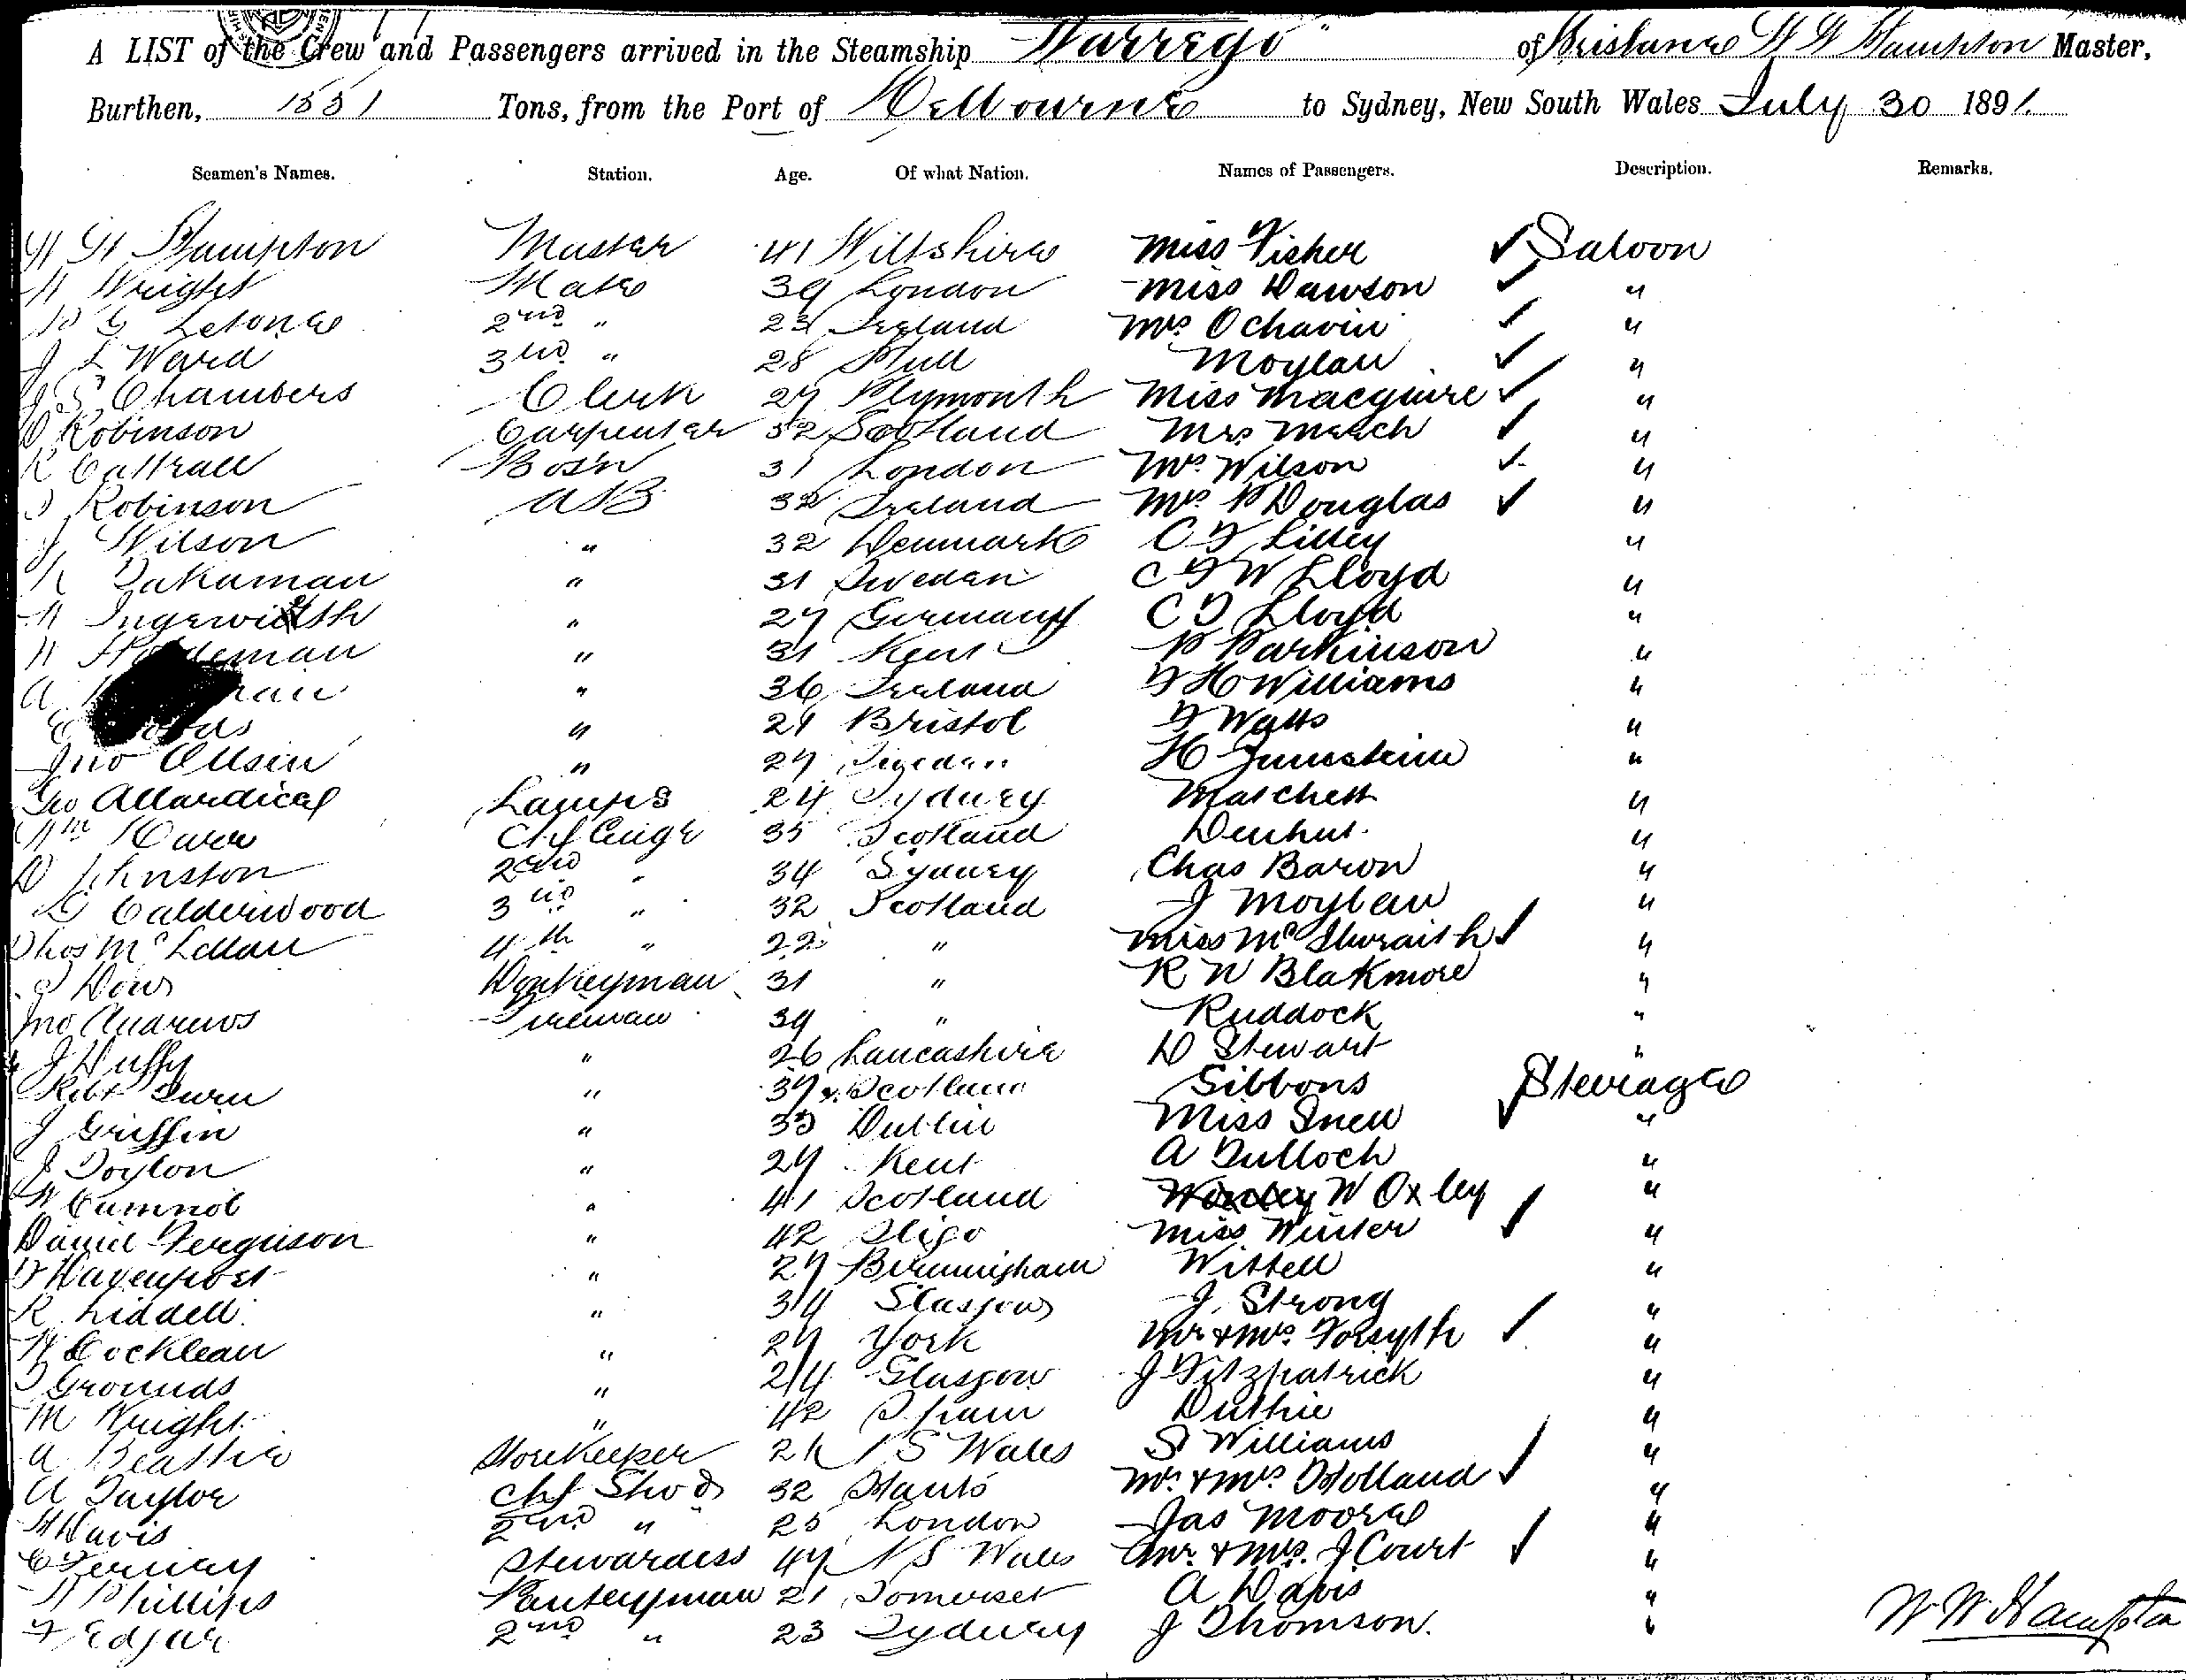 A LIST of the Crew and Passengers arrived in the Steamship Warrego of Brisbane W W Hampton Master,
Burthen, 1551 Tons, from the Port of Melbourne to Sydney, New South Wales July 30 1891.
Seamen's Names. Station. Age. Of what Nation. Names of Passengers. Description. Remarks.
W W Hampton Master 41 Wiltshire Miss Fisher ✓ Saloon
Wright Mate 39 London Miss Dawson ✓ "
2nd " 23 Ireland Mrs Ochavin ✓ "
J L Ward 3rd " 28 Hull Moylan ✓ "
J S Chambers Clerk 27 Plymouth Miss Macguire ✓ "
D Robinson Carpenter 52 Scotland Mrs Meech ✓ "
R Cattrall Bosn 31 London Mrs Wilson ✓ "
Robinson AB 32 Ireland Mrs P Douglas ✓ "
J Wilson " 32 Denmark C F Lilley "
" 31 Sweden C F W Lloyd "
" 27 Germany C F Lloyd "
" 31 Kent P Parkinson "
A " 36 Ireland F H Williams "
E " 21 Bristol F Watts "
Jno Ollsen " 27 Sweden H "
Geo Allardice Lamps 24 Sydney Matchett "
Wm Chf Enge 35 Scotland "
D Johnston 2nd " 34 Sydney Chas Baron "
Calderwood 3rd " 32 Scotland J Moylan "
Thos McLellan 4th " 22 " Miss McIlwraith ✓ "
Dow Donkeyman 31 " R W Blakmore "
Jno Andrews Fireman 39 " Ruddock "
J Duffy " 26 Lancashire D Stewart "
Robt " 37 Scotland Gibbons Steerage
J Griffin " 33 Dublin Miss Snell ✓ "
J Doylon " 27 Kent A Tulloch "
W Cumnol " 41 Scotland W Oxley "
Daniel Ferguson " 42 Sligo Miss Winter ✓ "
Davenport " 27 Birmingham Wittell "
R Liddell " 34 Glasgow J. Strong "
Cocklean " 27 York Mr & Mrs Forsyth ✓ "
Grounds " 24 Glasgow J Fitzpatrick "
M Wright " 42 Spain Duthie "
A Beattie Storekeeper 21 N S Wales S Williams "
A Taylor Chf Stwd 32 Hants Mr & Mrs Holland ✓ "
Davis 2nd " 25 London Jas Moore "
Stewardess 47 N S Wales Mr & Mrs J Court ✓ "
Phillips Pantryman 21 Somerset A Davis "
F Edgar 2nd " 23 Sydney J Thomson. "
W W Hampton